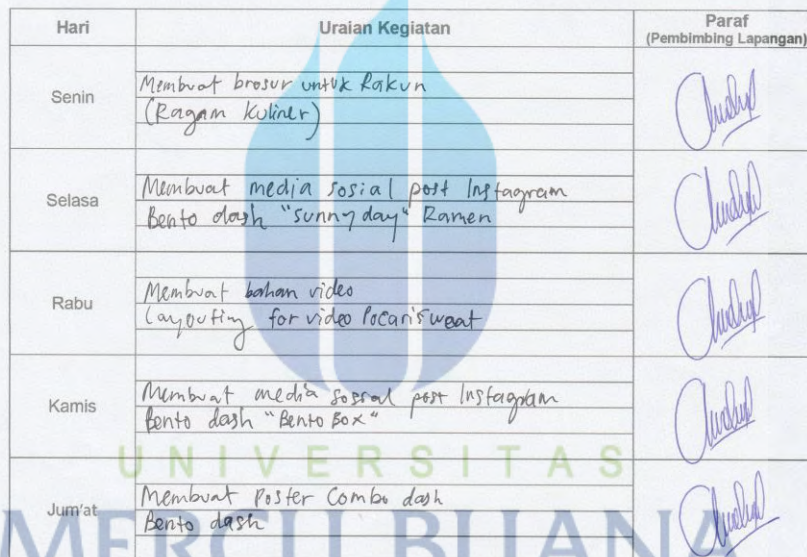 Hari Uraian Kegiatan Paraf
(Pembimbing Lapangan)
Senin
Membuat brosur untuk Rakun
(Ragam Kuliner)
Selasa
Membuat media sosial post Instagram
Bento dash "sunny day" Ramen
Rabu
Membuat bahan video
Layouting for video Pocarisweat
Kamis
Membuat media sosial post Instagram
Bento dash "Bento Box"
UNIVERSITAS
Jum'at
Membuat Poster Combo dash
Bento dash
MERCU BUANA